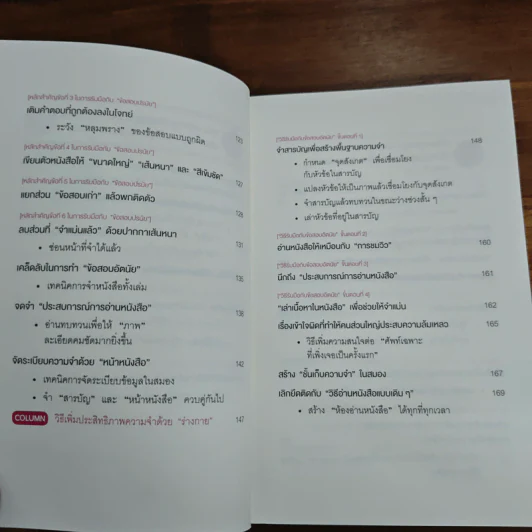 [หลักสำคัญข้อที่ 3 ในการรับมือกับ "ข้อสอบปรนัย"]
เติมคำตอบที่ถูกต้องลงในโจทย์
• ระวัง "หลุมพราง" ของข้อสอบแบบถูกผิด 123
[หลักสำคัญข้อที่ 4 ในการรับมือกับ "ข้อสอบปรนัย"]
เขียนตัวหนังสือให้ "ขนาดใหญ่" "เส้นหนา" และ "สีเข้มชัด" 127
[หลักสำคัญข้อที่ 5 ในการรับมือกับ "ข้อสอบปรนัย"]
แยกส่วน "ข้อสอบเก่า" แล้วพกติดตัว 128
[หลักสำคัญข้อที่ 6 ในการรับมือกับ "ข้อสอบปรนัย"]
ลบส่วนที่ "จำแม่นแล้ว" ด้วยปากกาเส้นหนา 131
• ซ่อนหน้าที่จำได้แล้ว
เคล็ดลับในการทำ "ข้อสอบอัตนัย" 135
• เทคนิคการจำหนังสือทั้งเล่ม
จดจำ "ประสบการณ์การอ่านหนังสือ" 138
• อ่านทบทวนเพื่อให้ "ภาพ"
ละเอียดคมชัดมากยิ่งขึ้น
จัดระเบียบความจำด้วย "หน้าหนังสือ" 143
• เทคนิคการจัดระเบียบข้อมูลในสมอง
• จำ "สารบัญ" และ "หน้าหนังสือ" ควบคู่กันไป
COLUMN วิธีเพิ่มประสิทธิภาพความจำด้วย "ร่างกาย" 147
["วิธีรับมือกับข้อสอบอัตนัย" ขั้นตอนที่ 1]
จำสารบัญเพื่อสร้างพื้นฐานความจำ 148
• กำหนด "จุดสังเกต" เพื่อเชื่อมโยง
กับหัวข้อในสารบัญ
• แปลงหัวข้อให้เป็นภาพแล้วเชื่อมโยงกับจุดสังเกต
• จำสารบัญแล้วทบทวนในขณะว่างช่วงสั้น ๆ
• เล่าหัวข้อที่อยู่ในสารบัญ
["วิธีรับมือกับข้อสอบอัตนัย" ขั้นตอนที่ 2]
อ่านหนังสือให้เหมือนกับ "การชมวิว" 160
["วิธีรับมือกับข้อสอบอัตนัย" ขั้นตอนที่ 3]
นึกถึง "ประสบการณ์การอ่านหนังสือ" 161
["วิธีรับมือกับข้อสอบอัตนัย" ขั้นตอนที่ 4]
"เล่าเนื้อหาในหนังสือ" เพื่อช่วยให้จำแม่น 162
เรื่องเข้าใจผิดที่ทำให้คนส่วนใหญ่ประสบความล้มเหลว 165
• วิธีเพิ่มความสนใจต่อ "ศัพท์เฉพาะ
ที่เพิ่งเจอเป็นครั้งแรก"
สร้าง "ชั้นเก็บความจำ" ในสมอง 167
เลิกยึดติดกับ "วิธีอ่านหนังสือแบบเดิม ๆ" 169
• สร้าง "ห้องอ่านหนังสือ" ได้ทุกที่ทุกเวลา